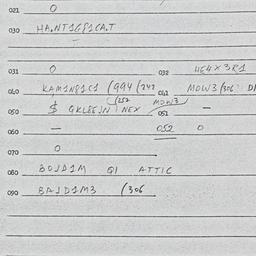 021 0
030 HA.NT1G81CA.T
031 0 032 4E4X3R1
040 KAM1N81C1 (994 (242 041 MDW3 (306
(252 MDW3
050 $ GKLEEJN NEX 051 —
060 — 052 0
070 0
080 BOJD1M GI ATTIC
090 BAJD1M3 (306